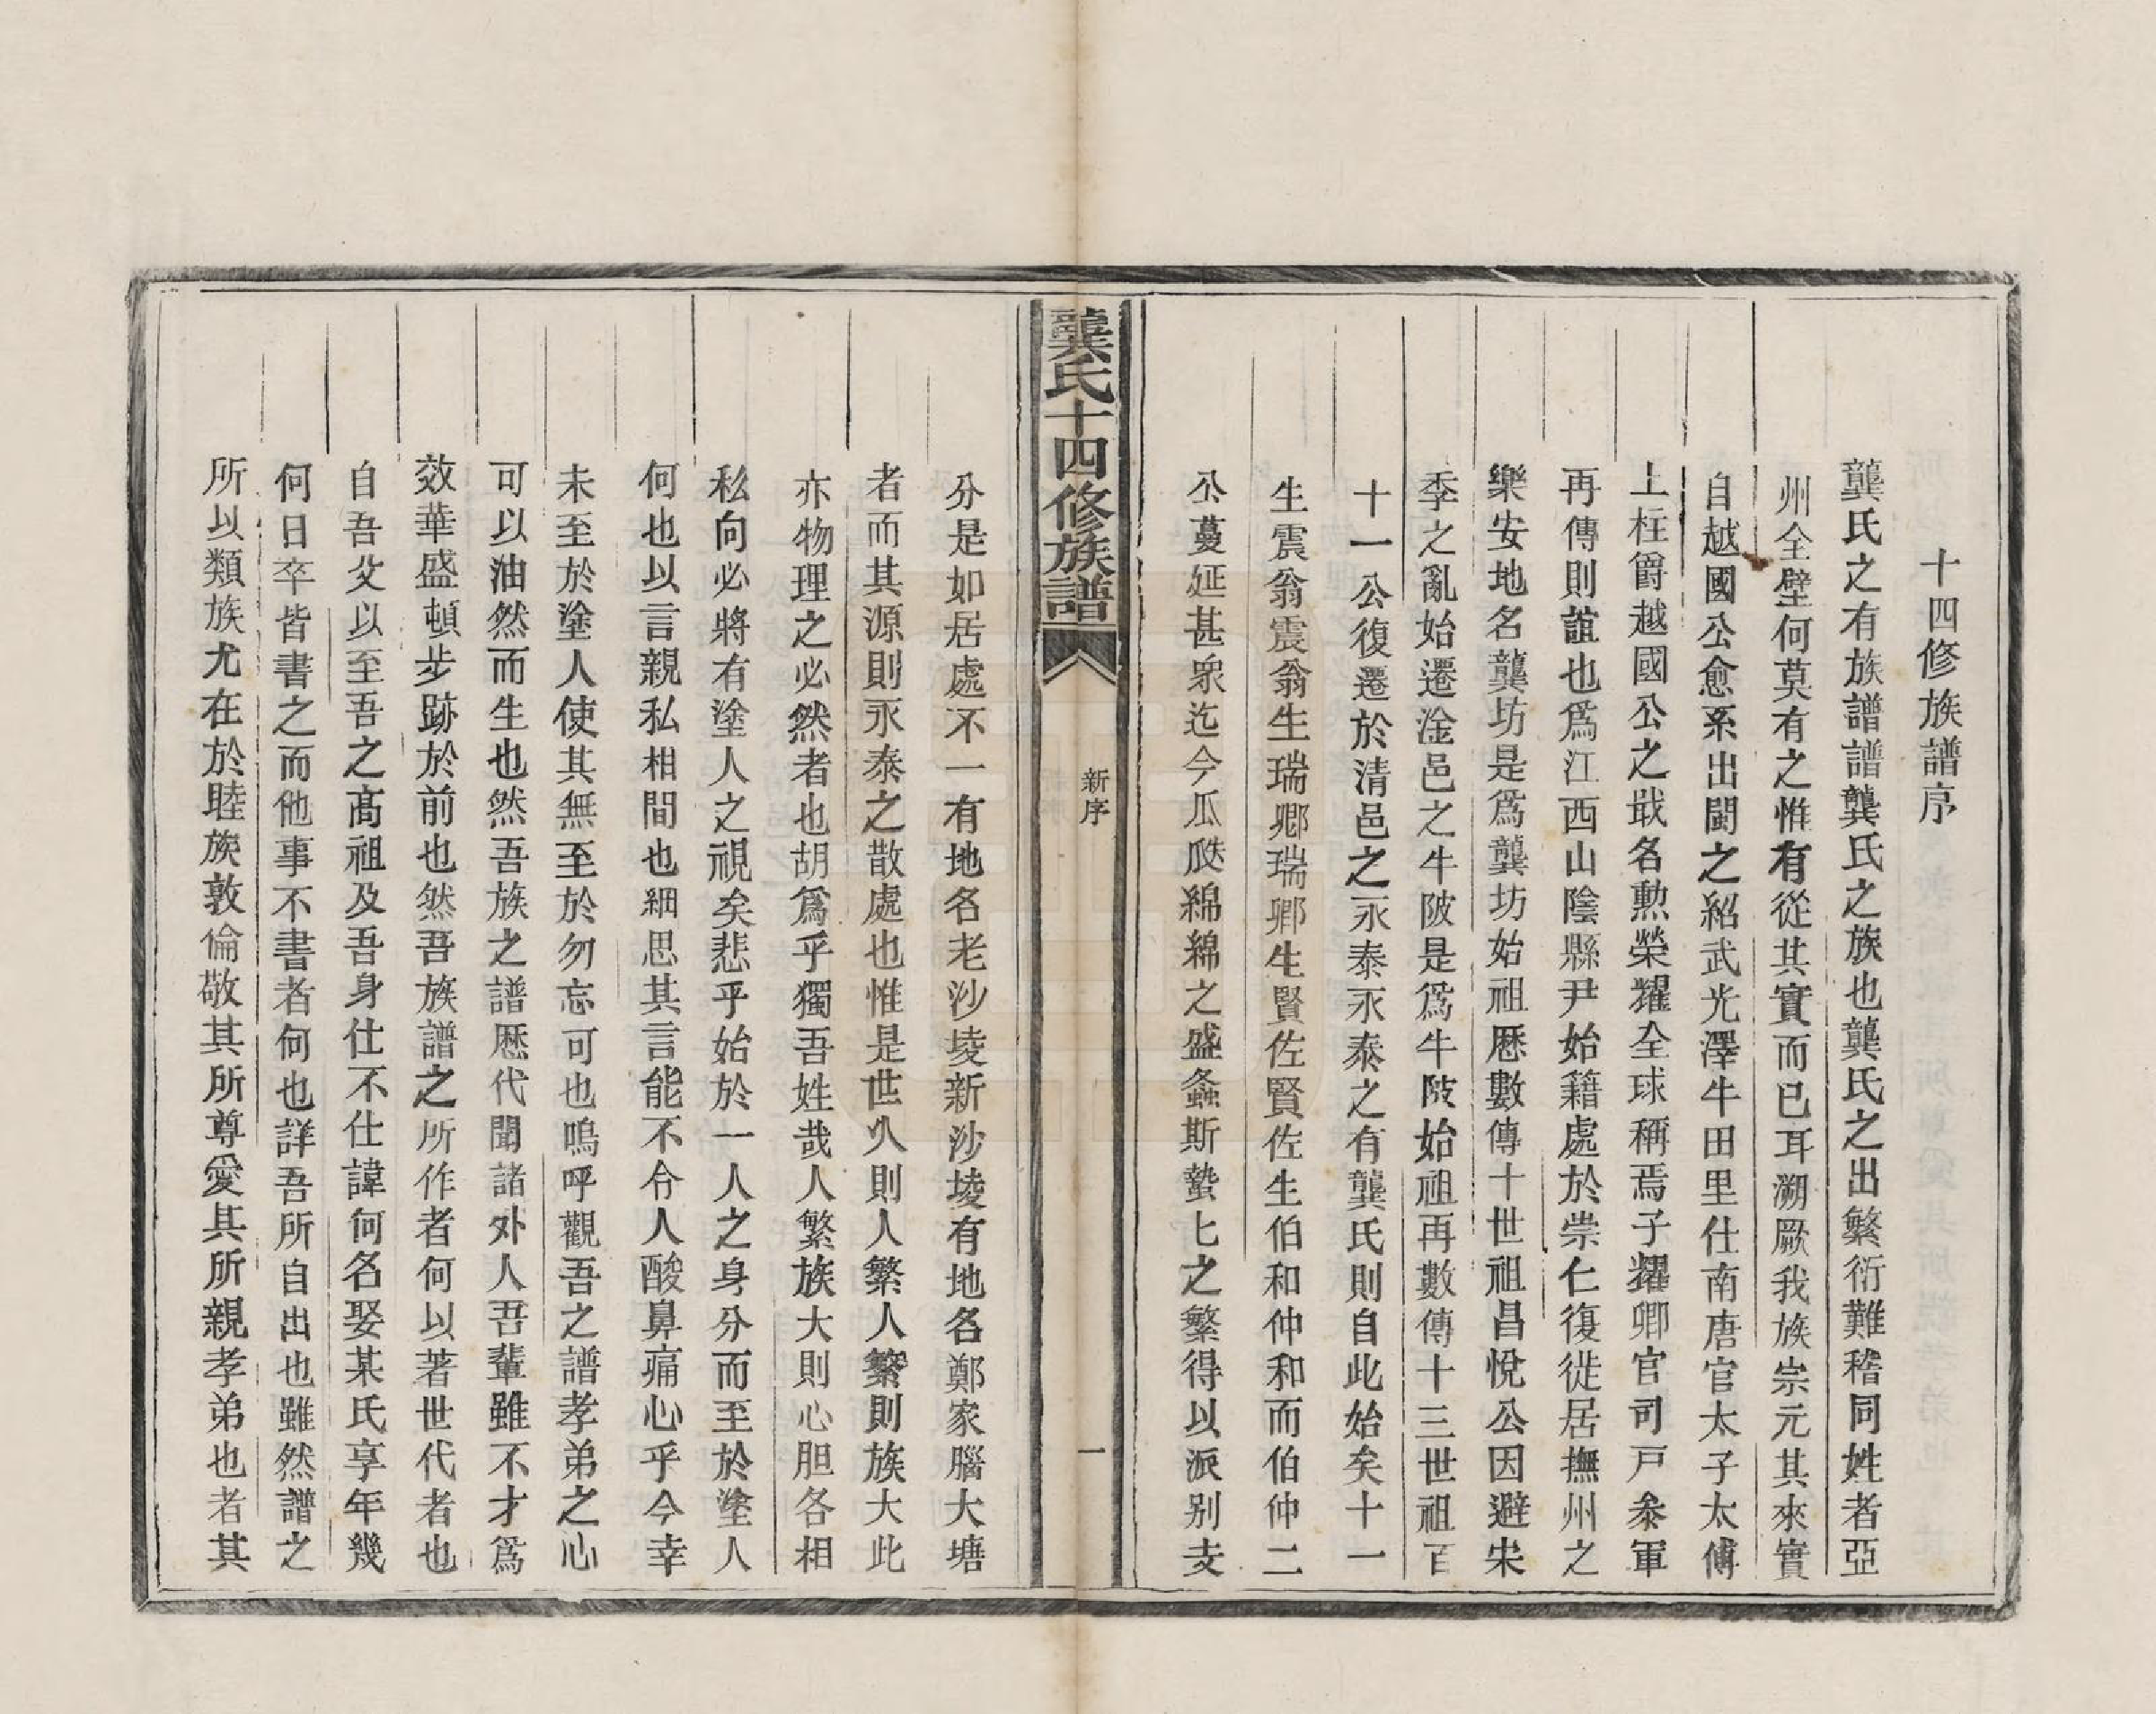 十四修族譜序
龔氏之有族譜譜龔氏之族也龔氏之出繁衍難稽同姓者亞
州全壁何莫有之惟有從其實而已耳溯厥我族崇元其來實
自越國公愈系出閩之紹武光澤牛田里仕南唐官太子太傅
上柱爵越國公之戢名勲榮耀全球稱焉子耀卿官司戸叅軍
再傳則誼也爲江西山陰縣尹始籍處於崇仁復徙居撫州之
樂安地名龔坊是爲龔坊始祖厯數傳十世祖昌悅公因避宋
季之亂始遷淦邑之牛陂是爲牛陂始祖再數傳十三世祖百
十一公復遷於清邑之永泰永泰之有龔氏則自此始矣十一
生震翁震翁生瑞卿瑞卿生賢佐賢佐生伯和仲和而伯仲二
公蔓延甚衆迄今瓜瓞綿綿之盛螽斯蟄七之繁得以派别支
龔氏十四修族譜
新序
一
分是如居處不一有地名老沙堎新沙堎有地名鄭家腦大塘
者而其源則永泰之散處也惟是世久則人繁人繁則族大此
亦物理之必然者也胡爲乎獨吾姓哉人繁族大則心胆各相
私向必將有塗人之視矣悲乎始於一人之身分而至於塗人
何也以言親私相間也細思其言能不令人酸鼻痛心乎今幸
未至於塗人使其無至於勿忘可也嗚呼觀吾之譜孝弟之心
可以油然而生也然吾族之譜厯代聞諸外人吾輩雖不才爲
效華盛頓步跡於前也然吾族譜之所作者何以著世代者也
自吾父以至吾之髙祖及吾身仕不仕諱何名娶某氏享年幾
何日卒皆書之而他事不書者何也詳吾所自出也雖然譜之
所以類族尤在於睦族敦倫敬其所尊愛其所親孝弟也者其